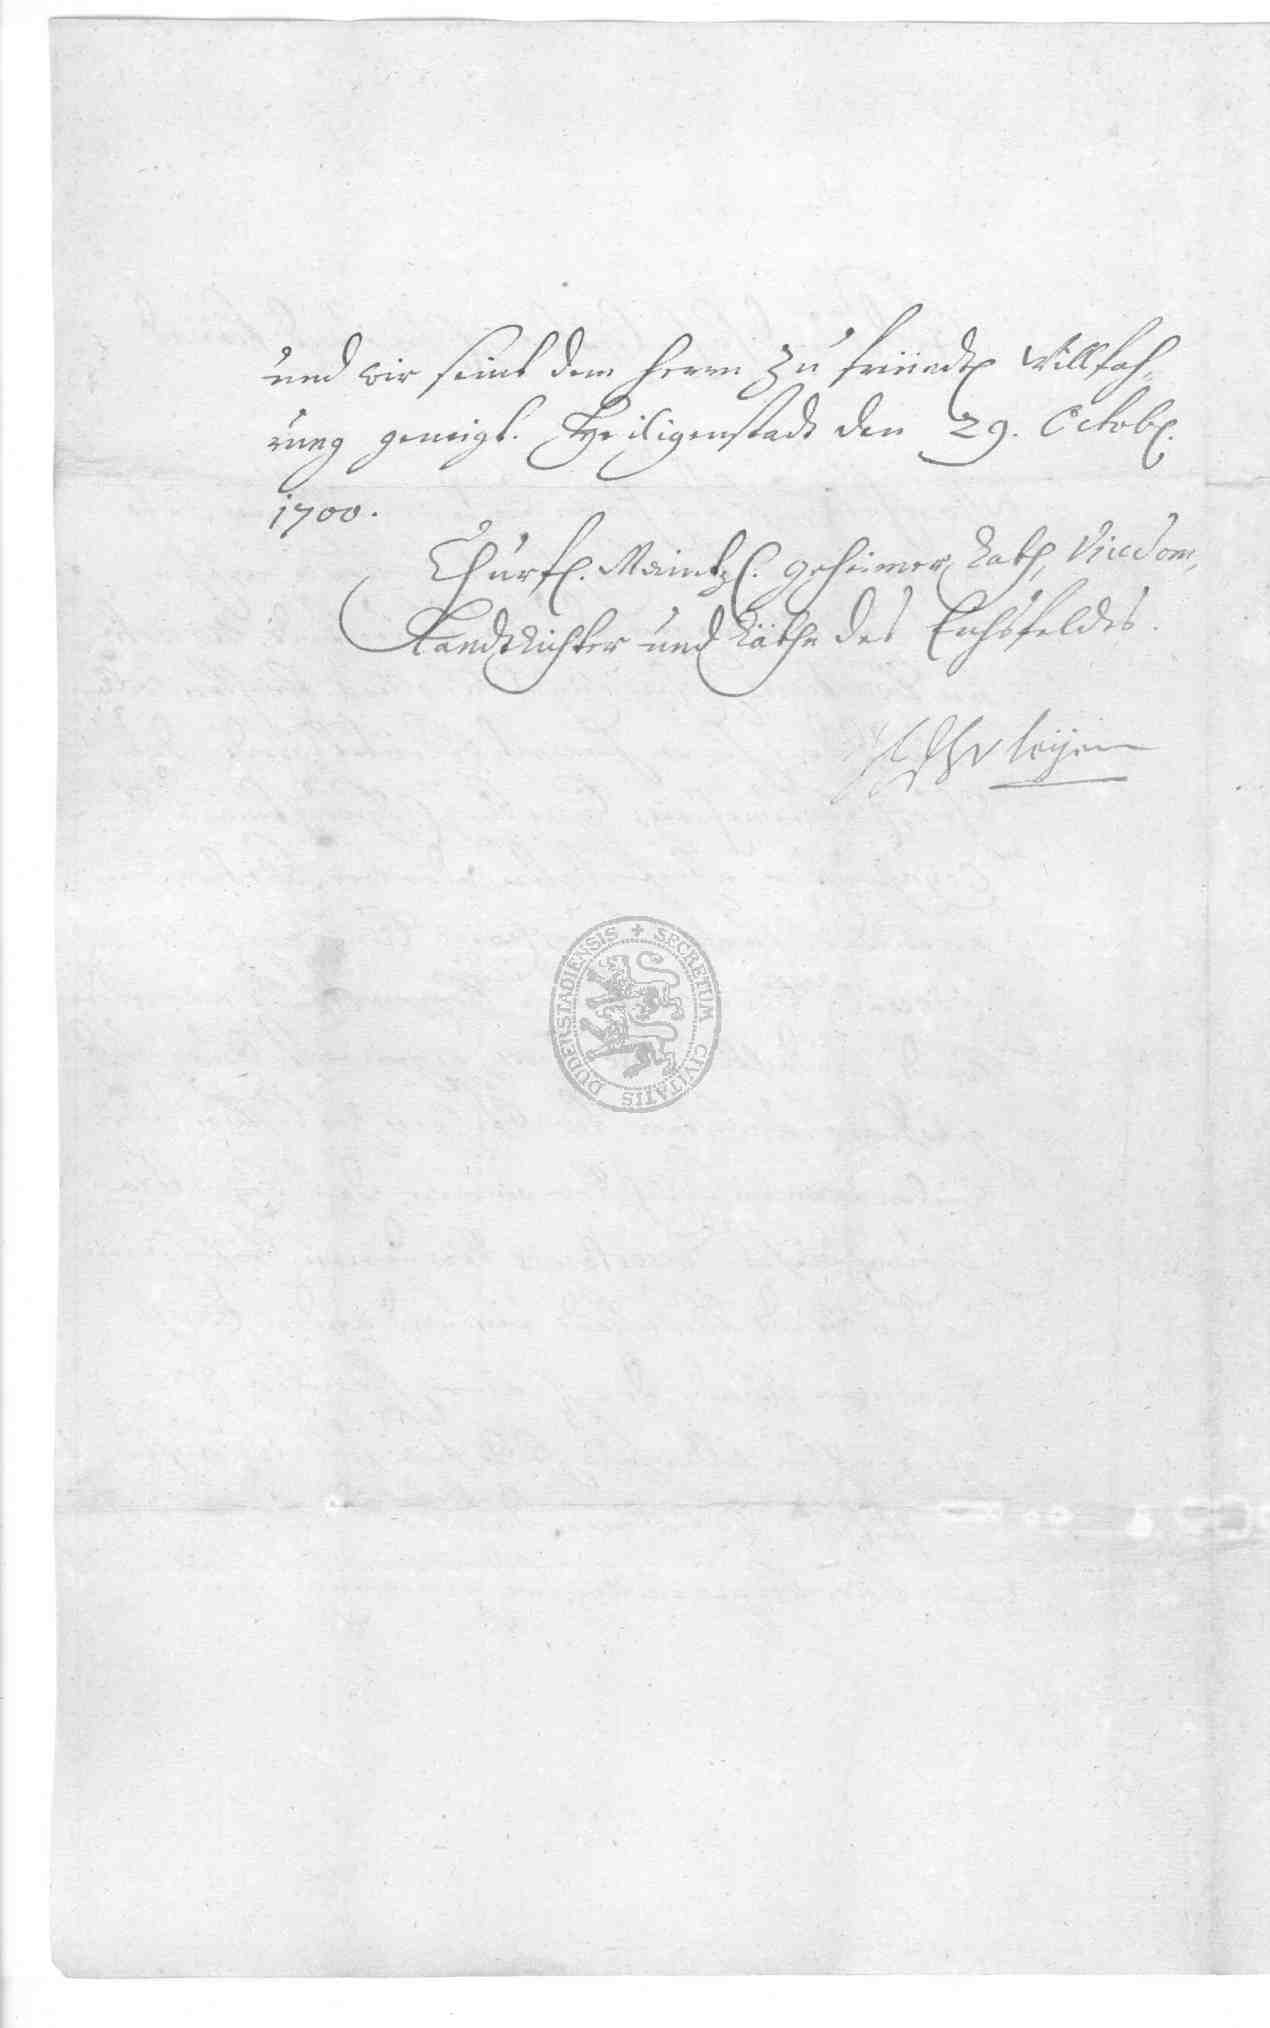 und wir seint dem Herrn zu freündtl. Willfah-
rung geneigt. Heiligenstadt den 29. Octobr.
1700.
Churfl. Maintzl. geheimer Rath, Vicedom,
Landtrichter und Räthe des Eichsfeldes.
leyen
SECRETUM CIVITATIS DUDERSTADIENSIS